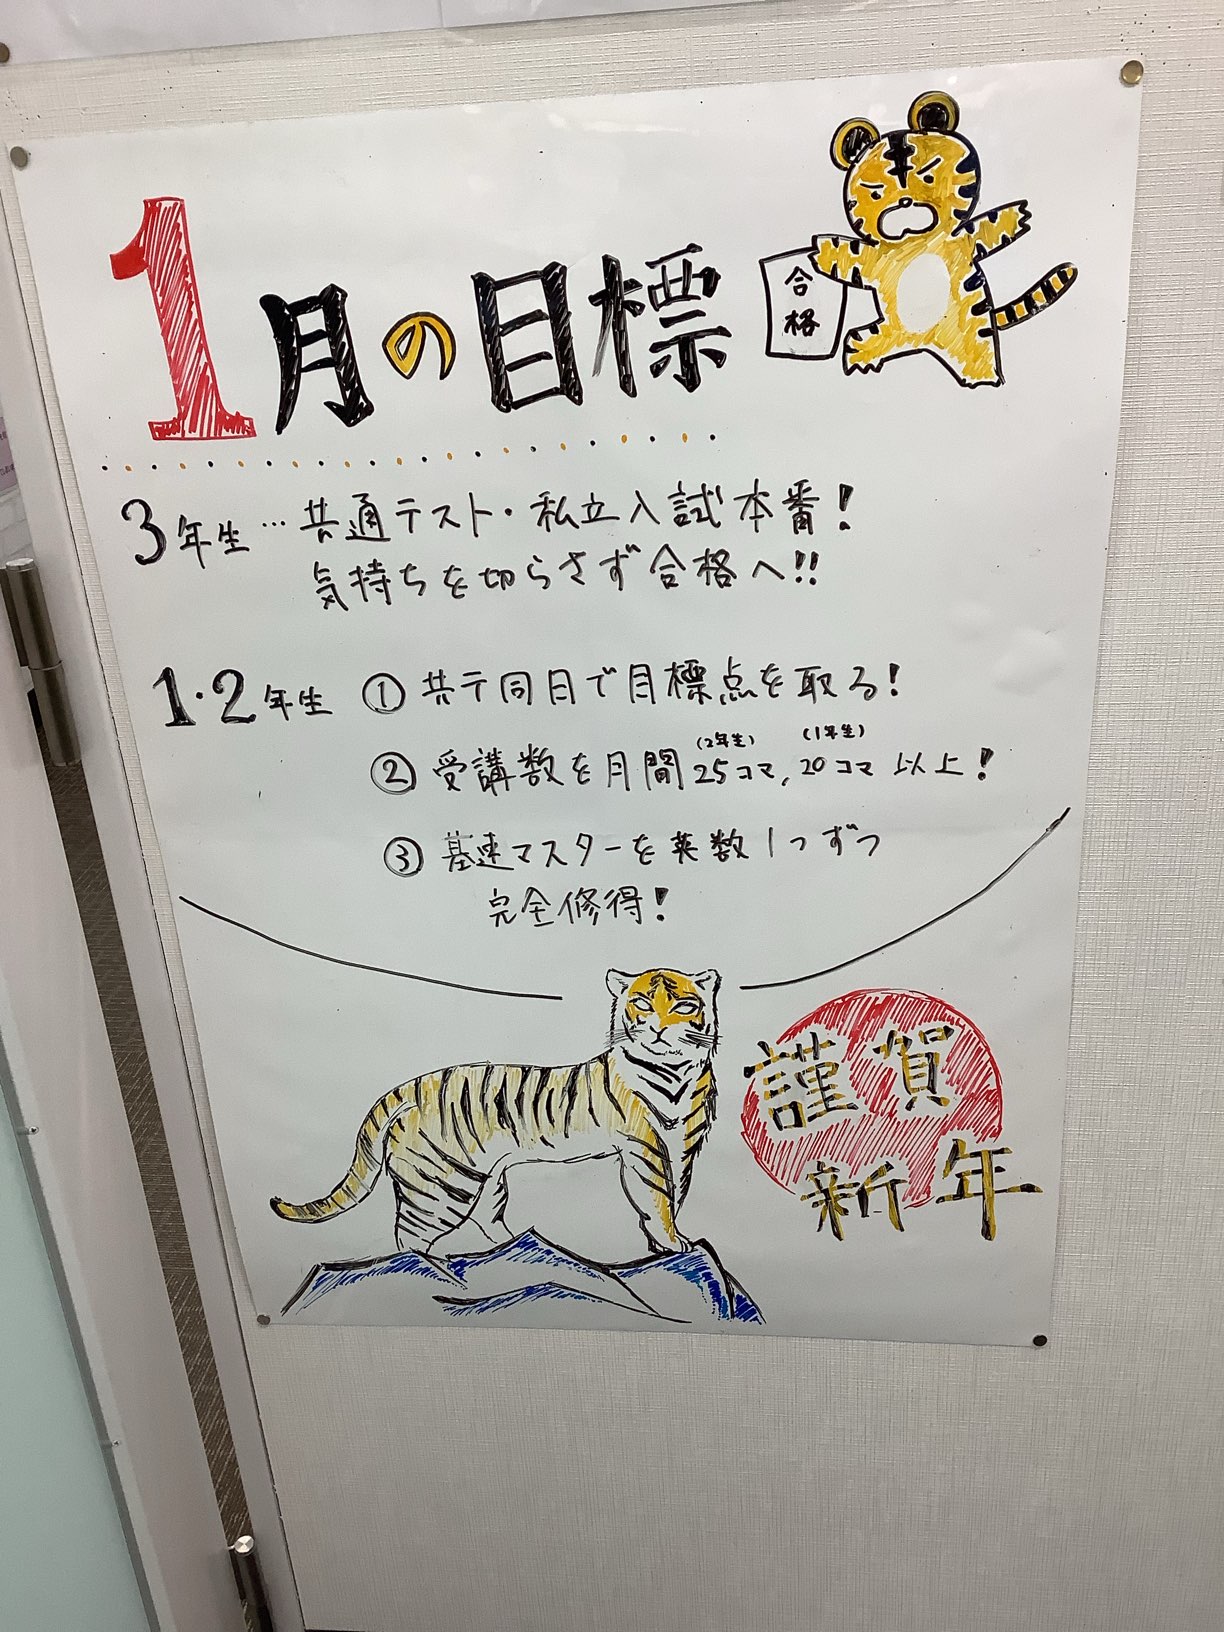 1月の目標
合格
3年生…共通テスト・私立入試本番!
気持ちを切らさず合格へ!!
1・2年生 ①共テ同日で目標点を取る!
(2年生) (1年生)
②受講数を月間25コマ,20コマ 以上!
③基速マスターを英数1つずつ
完全修得!
謹賀
新年